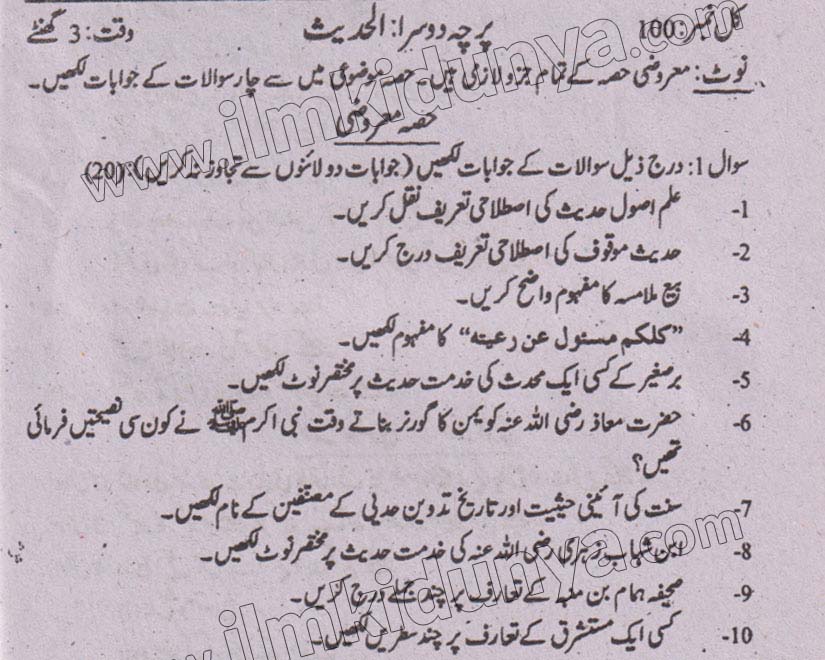 کل نمبر: 100 پرچہ دوسرا: الحدیث وقت: 3 گھنٹے
نوٹ: معروضی حصہ کے تمام جزو لازمی ہیں۔ حصہ موضوعی میں سے چار سوالات کے جوابات لکھیں۔
حصہ معروضی
سوال 1: درج ذیل سوالات کے جوابات لکھیں (جوابات دو لائنوں سے تجاوز نہ کریں)؟ (20)
1- علم اصول حدیث کی اصطلاحی تعریف نقل کریں۔
2- حدیث موقوف کی اصطلاحی تعریف درج کریں۔
3- بیع ملامسہ کا مفہوم واضح کریں۔
4- ”کلکم مسئول عن رعیته“ کا مفہوم لکھیں۔
5- برصغیر کے کسی ایک محدث کی خدمت حدیث پر مختصر نوٹ لکھیں۔
6- حضرت معاذ رضی اللہ عنہ کو یمن کا گورنر بناتے وقت نبی اکرم ﷺ نے کون سی نصیحتیں فرمائی
تھیں؟
7- سنت کی آئینی حیثیت اور تاریخ تدوین حدیث کے مصنفین کے نام لکھیں۔
8- ابن شہاب زہری رضی اللہ عنہ کی خدمت حدیث پر مختصر نوٹ لکھیں۔
9- صحیفہ ہمام بن منبہ کے تعارف پر چند جملے درج کریں۔
10- کسی ایک مستشرق کے تعارف پر چند سطریں لکھیں۔
www.ilmkidunya.com
www.ilmkidunya.com